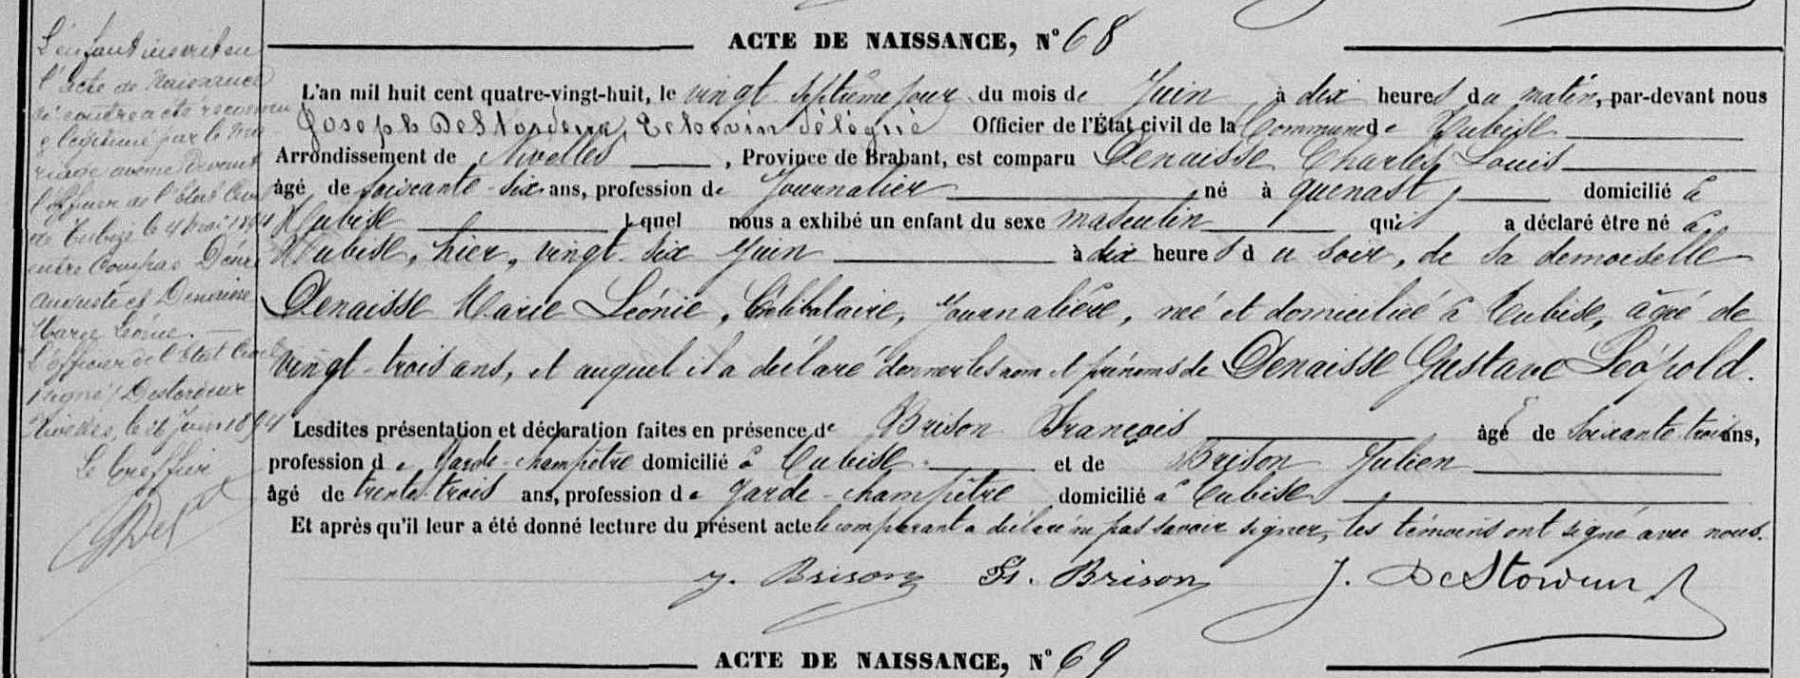 ACTE DE NAISSANCE, N° 68
L'an mil huit cent quatre-vingt-huit, le vingt septième jour du mois de Juin à dix heures du matin, par-devant nous
Joseph DeStordeur, Echevin délégué Officier de l'État civil de la Commune de Tubise
Arrondissement de Nivelles, Province de Brabant, est comparu Denaisse Charles Louis
âgé de soixante-six ans, profession de Journalier né à Quenast, domicilié à
Tubise lequel nous a exhibé un enfant du sexe masculin qu'il a déclaré être né à
Tubise, hier, vingt-six Juin à dix heures du soir, de sa demoiselle
Denaisse Marie Léonie, Célibataire, Journalière, née et domiciliée à Tubise, âgée de
vingt-trois ans, et auquel il a déclaré donner les nom et prénoms de Denaisse Gustave Léopold.
Lesdites présentation et déclaration faites en présence de Brison François âgé de soixante-trois ans,
profession de Garde-champêtre domicilié à Tubise et de Brison Julien
âgé de trente-trois ans, profession de garde-champêtre domicilié à Tubise
Et après qu'il leur a été donné lecture du présent acte le comparant a déclaré ne pas savoir signer, les témoins ont signé avec nous.
J. Brison Fs. Brison J. DeStordeur
L'enfant inscrit en
l'acte de Naissance
ci contre a été reconnu
& légitimé par le ma-
riage avenu devant
l'officier de l'Etat Civil
de Tubize le 4 mai 1894
entre Compas Désiré
Auguste et Denaisse
Marie Léonie.
L'officier de l'Etat Civil
signé Destordeur
Nivelles, le 26 Juin 1894
Le Greffier
ACTE DE NAISSANCE, N° 69